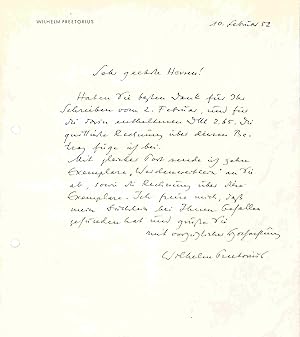 WILHELM PREETORIUS
10. Februar 52
Sehr geehrte Herren!
Haben Sie besten Dank für Ihr
Schreiben vom 2. Februar, und für
die darin enthaltenen DM 2.85. Die
quittierte Rechnung über diesen Be-
trag füge ich bei.
Mit gleicher Post sende ich zehn
Exemplare an Sie
ab, sowie die Rechnung über diese
Exemplare. Ich freue mich, daß
mein Büchlein bei Ihnen Gefallen
gefunden hat und grüße Sie
mit vorzüglicher Hochachtung
Wilhelm Preetorius